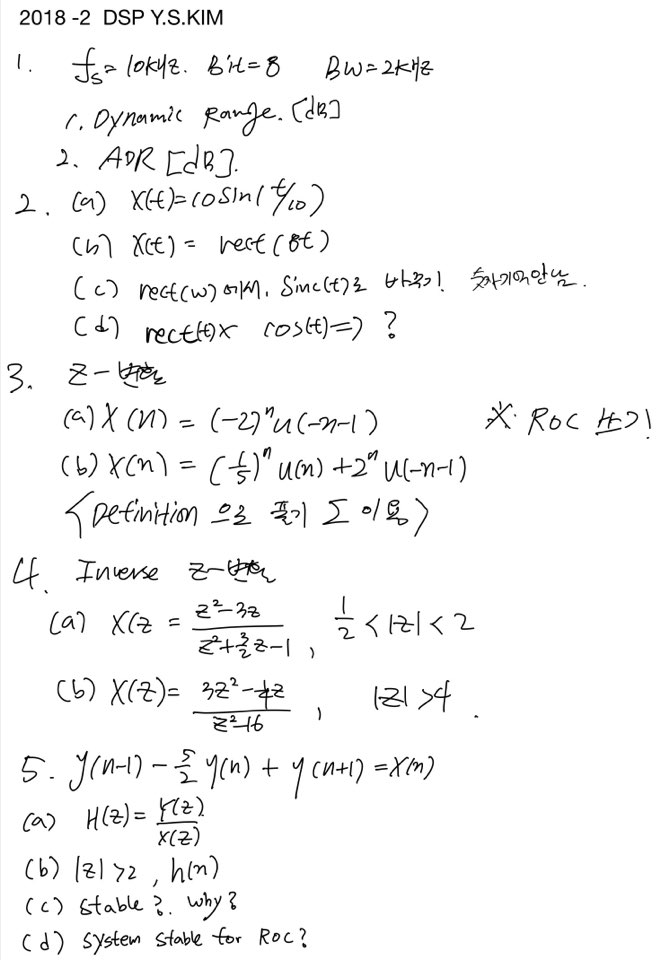 2018 -2 DSP Y.S.KIM
1. fs = 10kHz. Bit = 8 BW = 2kHz
1. Dynamic Range. [dB]
2. ADR [dB].
2. (a) X(t) = 10 sin(t/10)
(b) X(t) = rect(8t)
(c) rect(w) 에서, sinc(t)로 바꾸기! 숫자기억안남.
(d) rect(t) x cos(t) => ?
3. Z-변환
(a) X(n) = (-2)^n u(-n-1) ※. ROC 쓰기!
(b) X(n) = (1/5)^n u(n) + 2^n u(-n-1)
<Definition 으로 풀기 Σ 이용>
4. Inverse Z-변환
(a) X(z = (z²-3z)/(z²+3/2z-1), 1/2 < |z| < 2
(b) X(z) = (3z²-4z)/(z²-16), |z| > 4.
5. y(n-1) - 5/2 y(n) + y(n+1) = x(n)
(a) H(z) = Y(z)/X(z)
(b) |z| > 2, h(n)
(c) stable?. why?
(d) system stable for ROC?